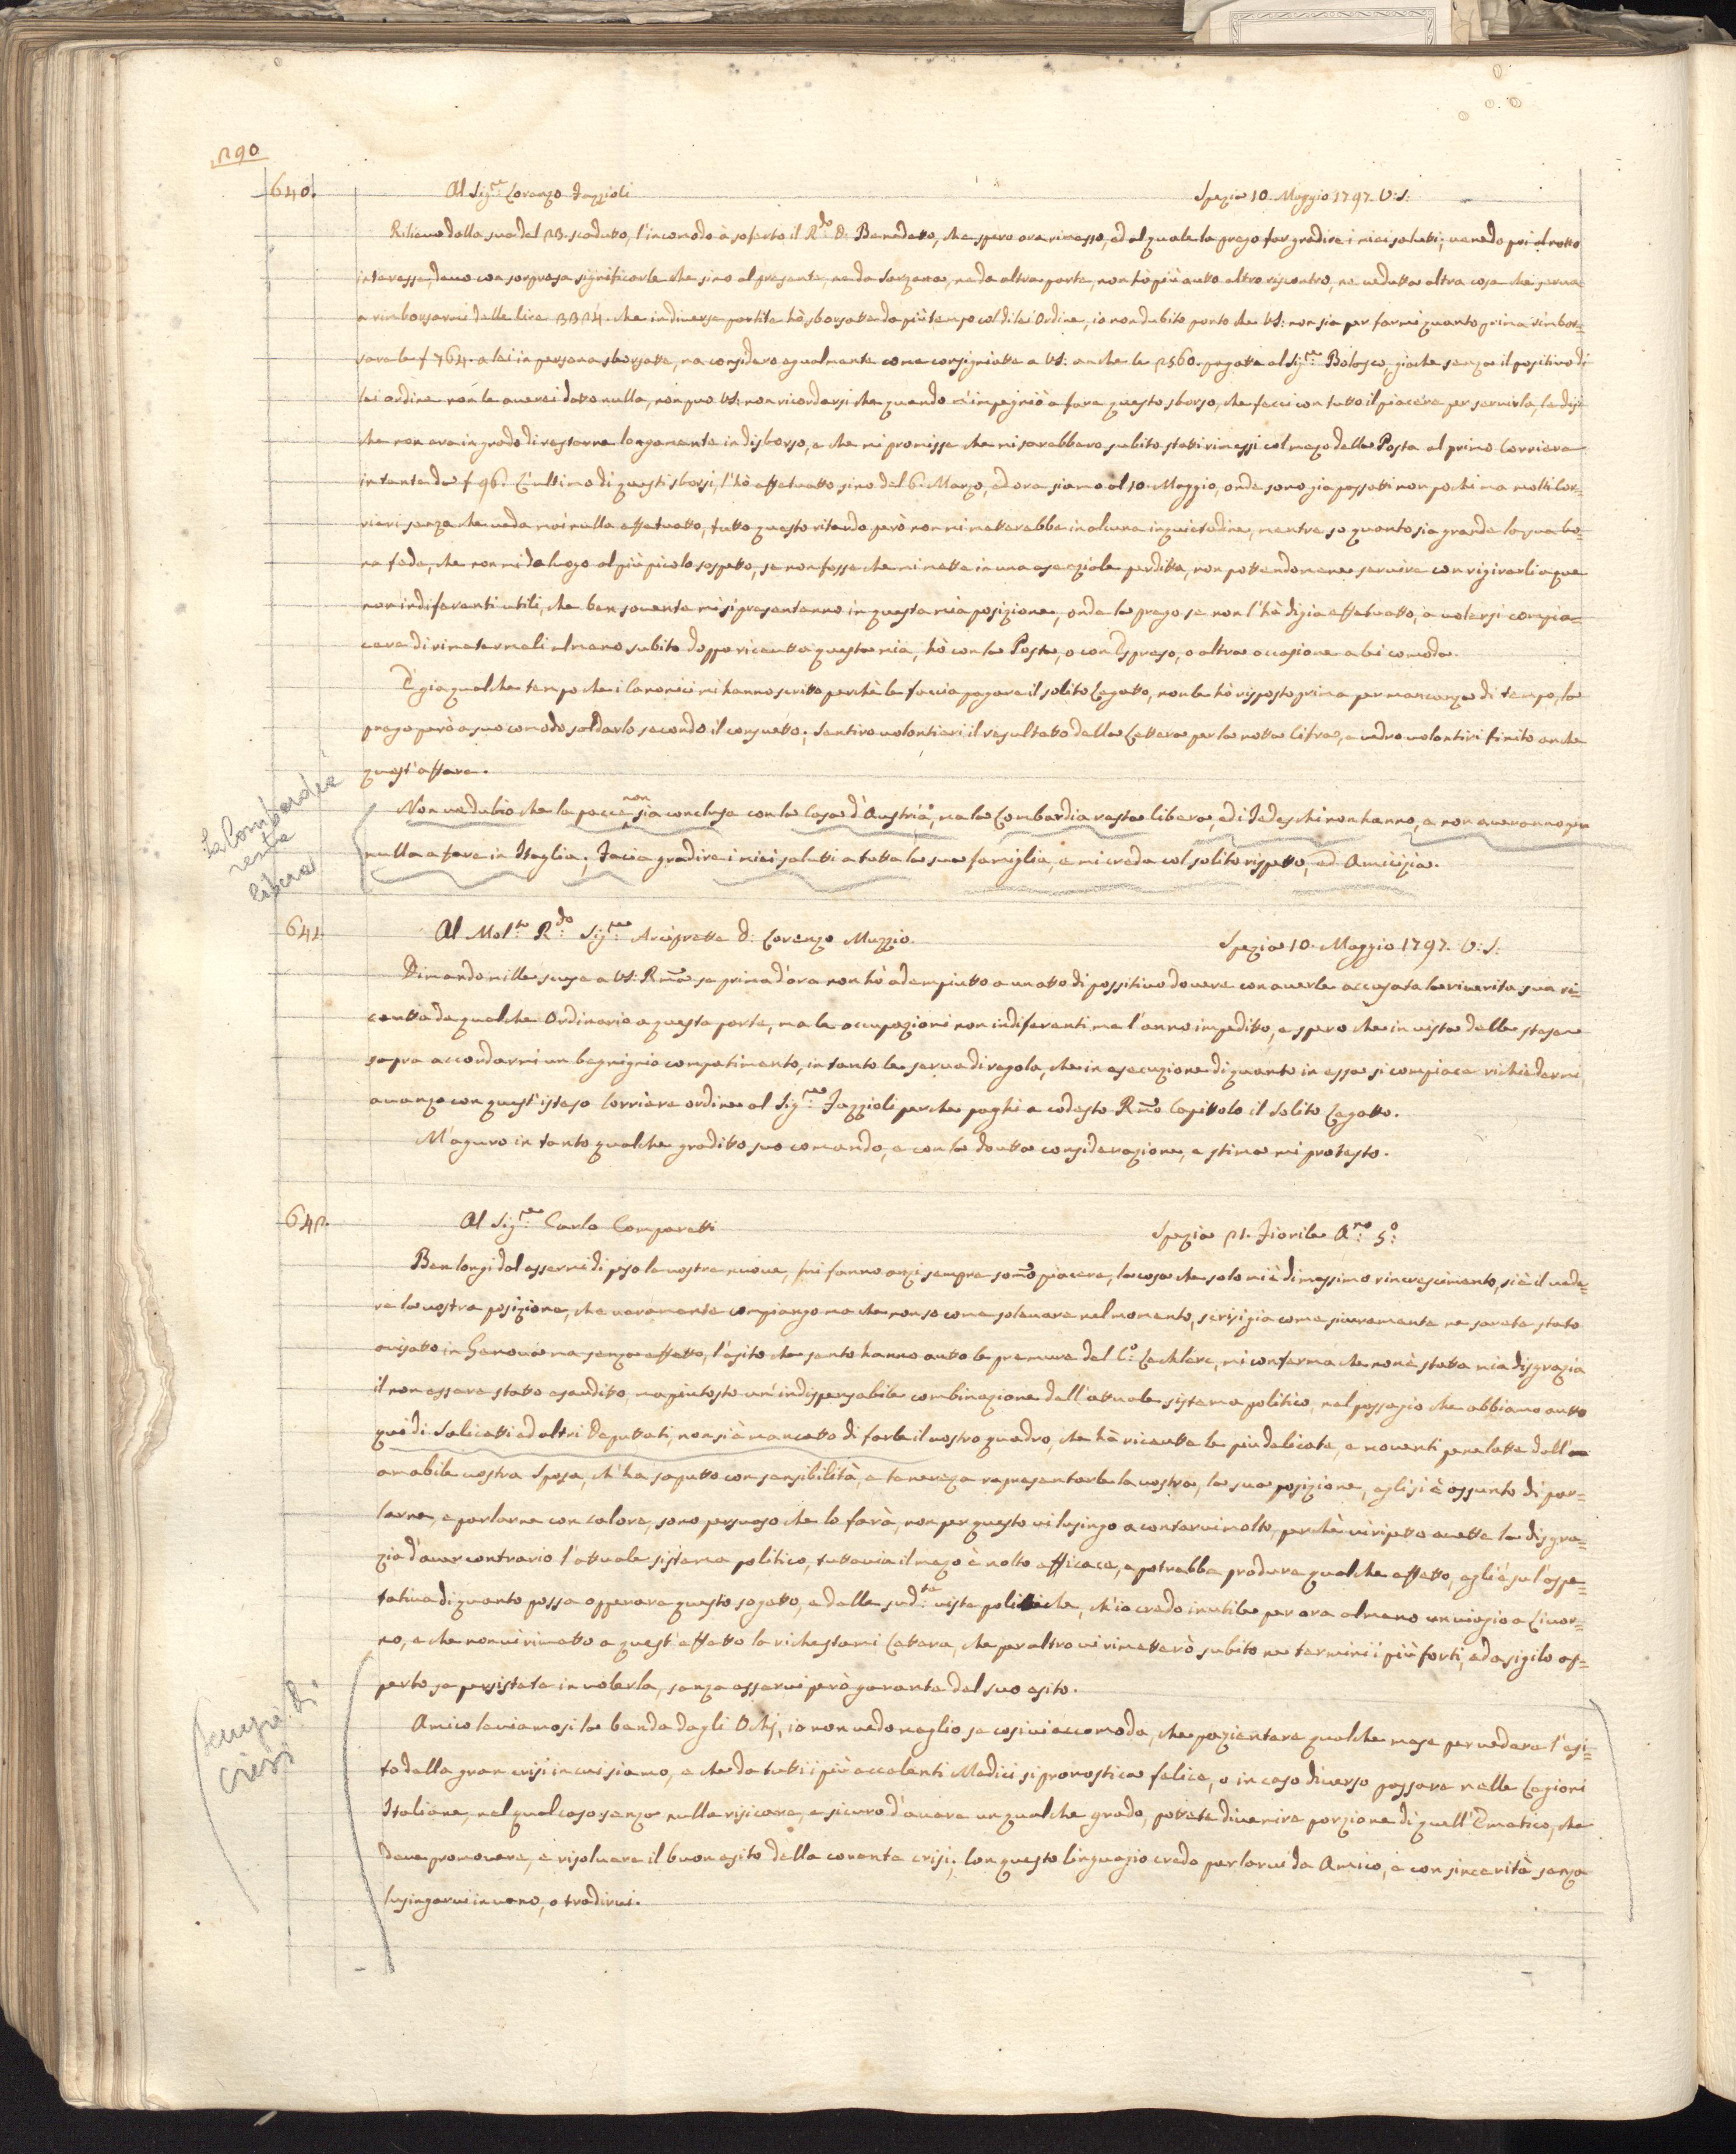 290
640.
Al Sig.re Lorenzo Fazzioli
Spezia 10. Maggio 1797. V: S:
Rilievo dalla sua del 23. scaduto, l'incomodo à soferto il R.do D: Benedetto, che spero ora rimesso, ed al quale la prego far gradire i miei saluti; venedo poi al notto
interesse, devo con sorpresa significarle che sino al presente, ne da Sarzana, ne da altra parte, non hò più autto altro riscontro, ne veduta altra cosa che serva
a rimborsarmi delle lire 3324. che in diverse partite hò sborsatte da più tempo col di lei Ordine, io non dubito punto che VS: non sia per farmi quanto prima rimbor=
sare le f 764. a lei in persona sborsatte, ma considero egualmente come consigniatte a VS: anche le 2560. pagatte al Sig.re Bolosco, giache senza il positivo di
lei ordine non le averei datto nulla, non puo VS: non ricordarsi che quando m'impegniò a fare questo sborso, che feci con tutto il piacere per servirla, le disi
che non era in grado di restarne longamente in disborso, e che mi promisse che mi sarebbero subito stati rimessi col mezo della Posta al primo Corriere
intantendo f 96. L'ultimo di questi sborsi, l'hò effetuatto sino dal 6. Marzo, ed ora siamo al 10. Maggio, onde sono gia passatti non pochi ma molti Cor=
rieri senza che veda mai nulla effetuatto, tutto questo ritardo però non mi metterebbe in alcuna inquietudine, mentre so quanto sia grande la sua bo=
na fede, che non mi da luogo al più picolo sospetto, se non fosse che mi mette in una asenziale perdita, non pottendomene servire con rigirarli a que
non indiferenti utili, che ben sovente mi si presentanno in questa mia posizione, onde la prego se non l'hà digia effetuatto, a volersi compia=
cere di rimetermeli almeno subito doppo riceutta questa mia, hò con la Posta, o con Espreso, o altra occasione a lei comoda.
È gia qualche tempo che i Canonici mi hanno scritto perchè le faccia pagare il solito Legatto, non le hò risposto prima per mancanza di tempo, la
prego però a suo comodo saldarlo secondo il consuetto; Sentirò volontieri il resultatto della Lettera per la notta Cifra, e vedrò volontiri finito anche
quest'affare.
La Lombardia
resta
libera
Non ve dubio che la pacce non sia conclusa con la Casa d'Austria, ma la Lombardia resta libera, ed i Tedeschi non hanno, e non averanno piu
nulla a fare in Itaglia; Facia gradire i miei saluti a tutta la sua famiglia, e mi creda col solito rispetto, ed Amicizia.
641
Al Mol.to R.do Sig.re Arciprette D: Lorenzo Muzzio.
Spezia 10. Maggio 1797. V: S:
Dimando mille scuse a VS: Rm̃a se prima d'ora non hò adempiutto a un atto di possitivo dovere con averle accusata la riverita sua ri=
ceutta da qualche Ordinario a questa parte, ma le occupazioni non indiferenti me l'anno impeditto, e spero che in vista delle stesse
sapra accordarmi un begnignio compatimento, in tanto le serva di regola, che in esecuzione di quanto in essa si compiace richiedermi,
avanzo con quest'isteso Corriere ordine al Sig.re Fazzioli perche paghi a codesto Rm̃o Capittolo il Solito Legatto.
M'aguro in tanto qualche graditto suo comando, e con la doutta considerazione, e stima mi protesto.
642.
Al Sig.re Carlo Comparetti
Spezia 21. Fiorile A.no 5.o
Ben longi dal essermi di peso le vostre nuove, mi fanno anzi sempre som̃o piacere, la cosa che solo mi è di massimo rincrescimento, si è il vede=
re la vostra posizione, che veramente compiango ma che non so come solevare nel momento, scrisi gia come siuramente ne sarete stato
avisatto in Genova ma senza effetto, l'esito che sento hanno autto le premure del C.o Lechlerc, mi conferma che non è statta mia disgrazia
il non essere statto esauditto, ma piutosto un'indispensabile combinazione dell'attuale sistema politico, nel passagio che abbiamo autto
qui di Salicetti ed altri Deputtati, non si è mancatto di farle il vostro quadro, che hà riceutte le piu delicate, e moventi penelatte dall'
amabile vostra Sposa, ch'ha saputto con sensibilità, e tenereza rapresentarle la vostra, la sua posizione, egli si è assunto di par=
larne, e parlarne con calore, sono persuaso che lo farà, non per questo vi lusingo a contarvi molto, perchè vi ripetto avette la disgra=
zia d'aver contrario l'attuale sistema politico, tuttavia il mezo è molto efficace, e potrebbe produre qualche effetto, egli è sul'aspe=
tativa di quanto possa opperare questo sogetto, e dalle sud.te viste politiche, ch'io credo inutile per ora almeno un viagio a Livor=
no, e che non vi rimetto a quest'effetto la richestami Lettera, che per altro vi rimetterò subito ne termini i più forti, ed a sigilo as=
perto se persistete in volerla, senza esservi però garante del suo esito.
crisi
Amico leviamosi la benda dagli Ochj, io non vedo meglio se cosi vi accomoda, che pazientare qualche mese per vedere l'esi=
to della gran crisi in cui siamo, e che da tutti i più eccelenti Medici si pronostica felice, o in caso diverso passare nelle Legioni
Italiane, nel qual caso senza nulla risicare, e sicuro d'avere un qualche grado, potrete divenire porzione di quell'Ematico, che
deve promovere, e risolvere il buon esito della corente crisi; Con questo linguagio credo parlarvi da Amico, e con sincerità senza
lusingarvi in vano, o tradirvi.